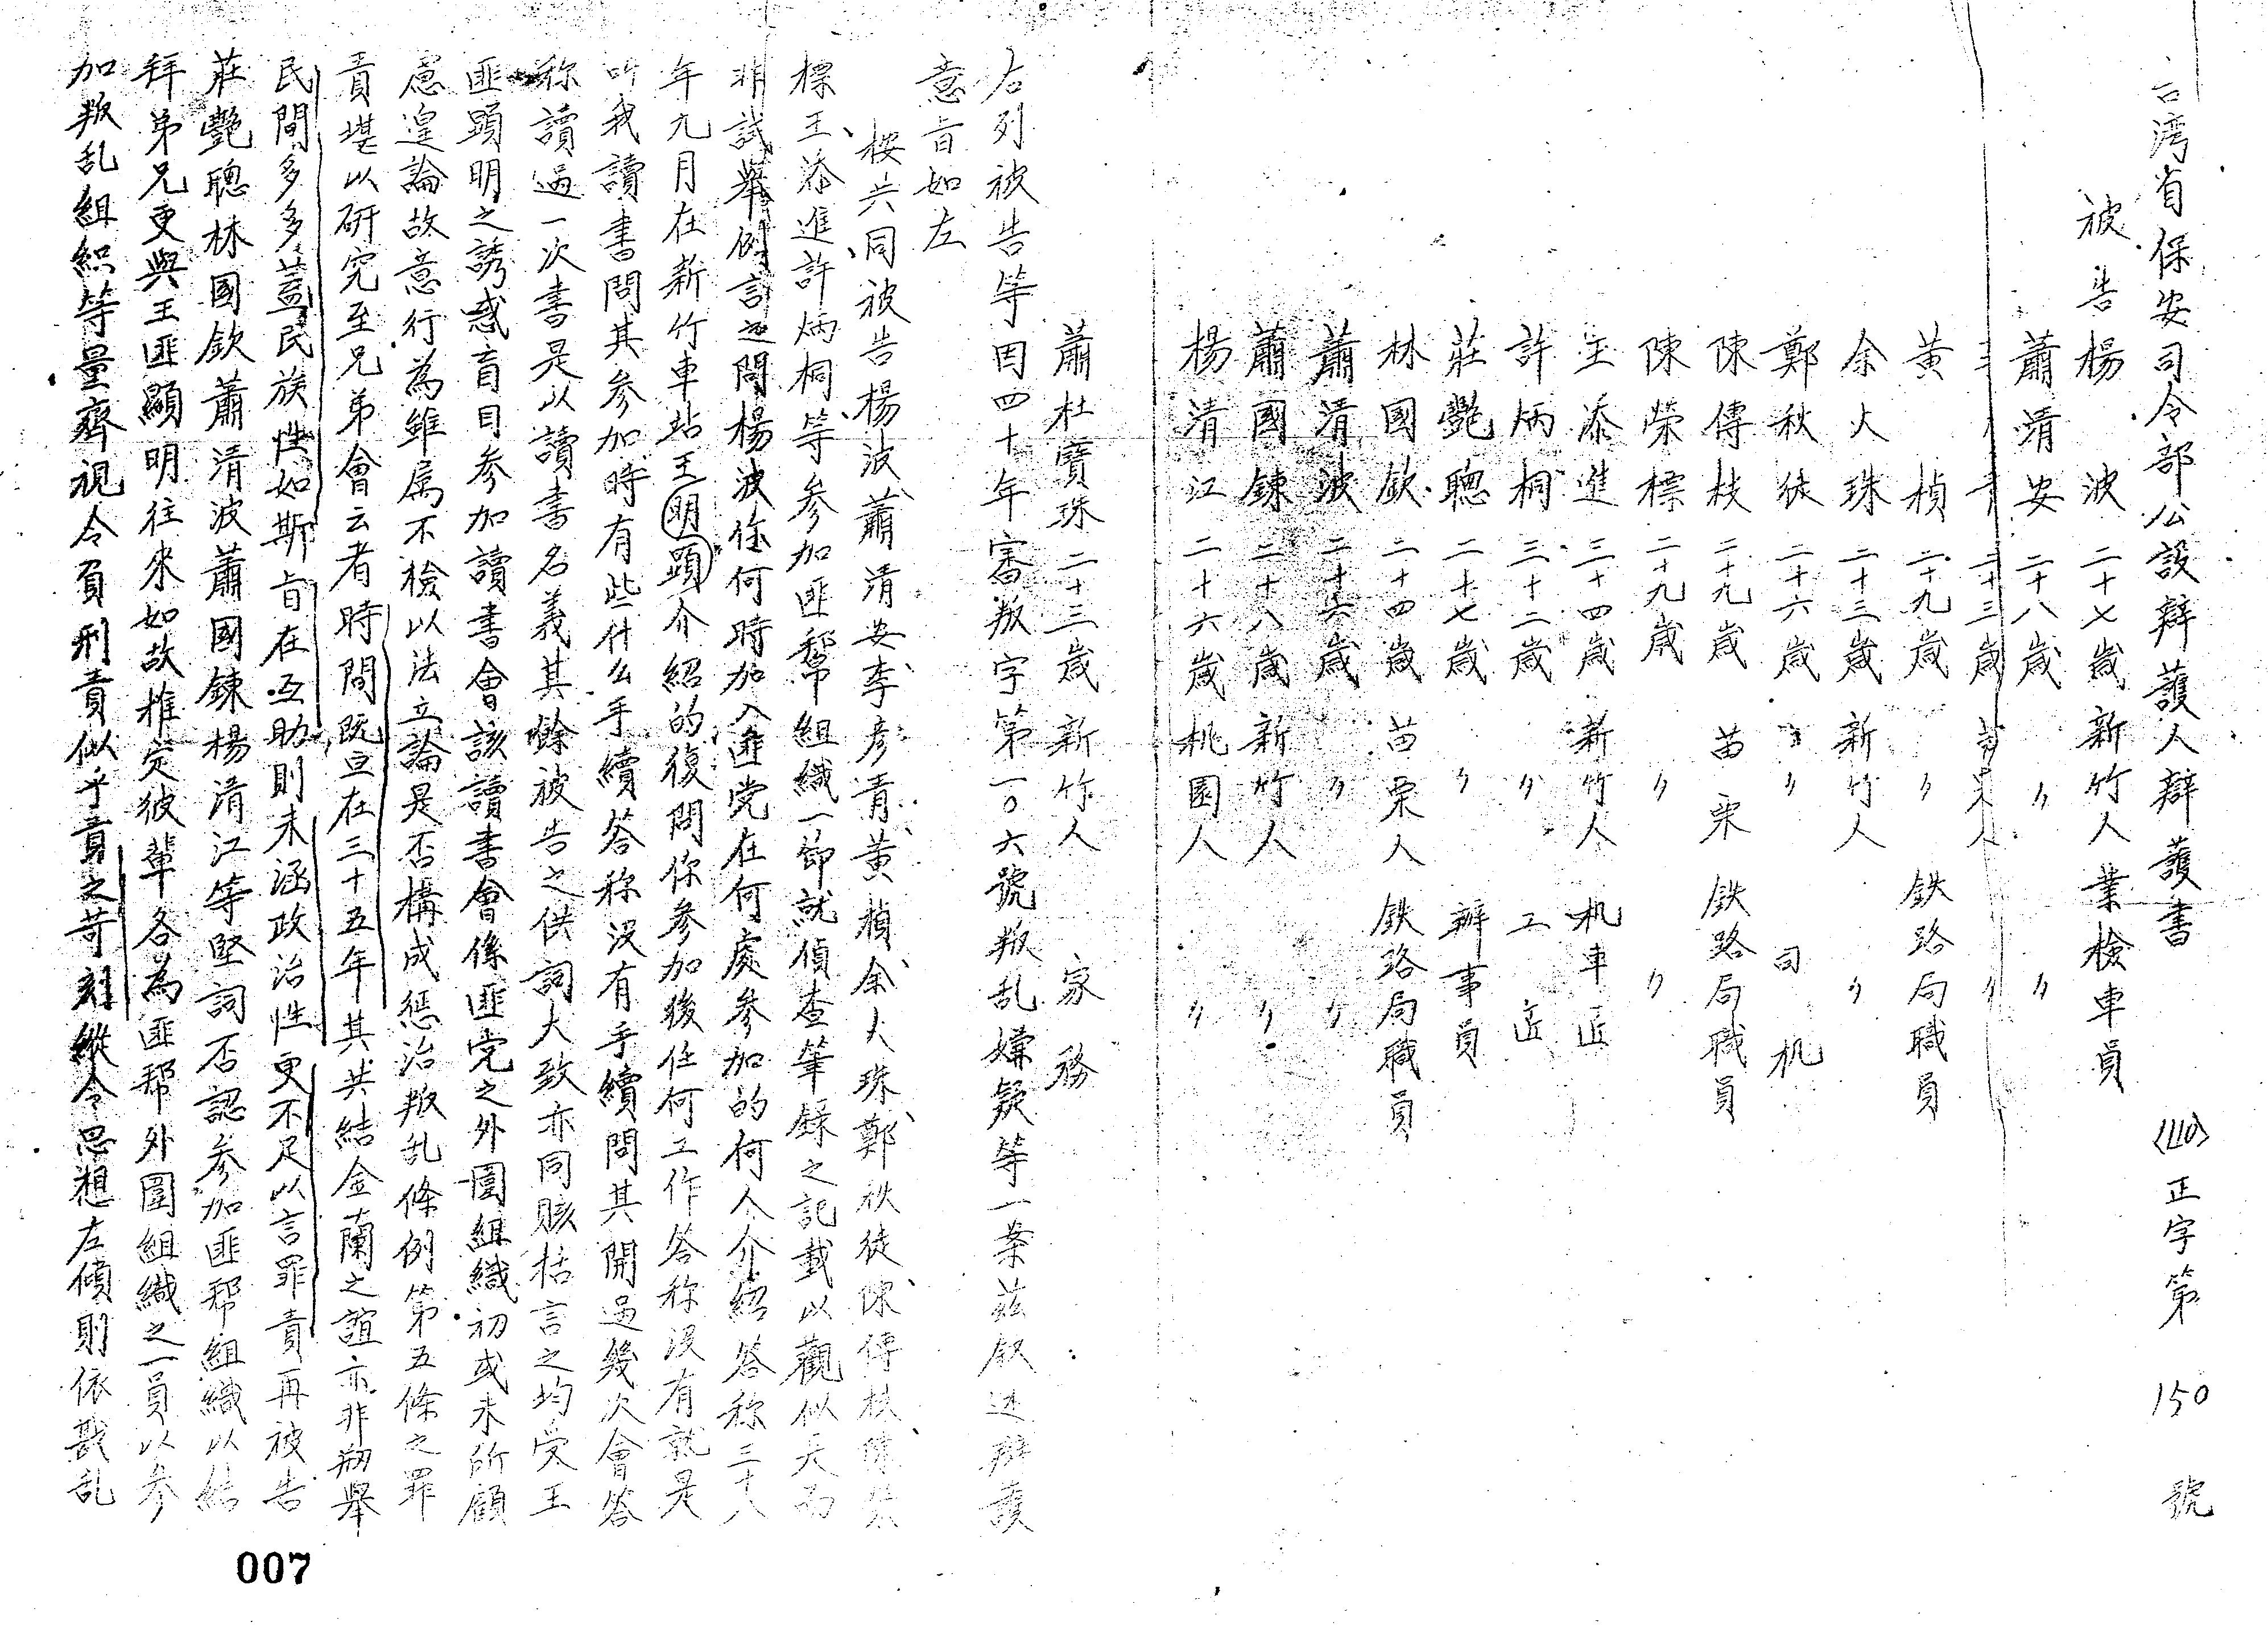 台湾省保安司令部公設辯護人辯護書 (40)正字第 150 號
被告楊 波 二十七歲 新竹人 業檢車員
蕭清安 二十八歲 〃 〃
二十三歲 苗栗人 〃
黃 楨 二十九歲 〃 鉄路局職員
余大珠 二十三歲 新竹人 〃
鄭秋徒 二十六歲 〃 司机
陳傳枝 二十九歲 苗栗 鉄路局職員
陳榮標 二十九歲 〃 〃
王添進 三十四歲 新竹人 机車匠
許炳桐 三十二歲 〃 工匠
莊艷聰 二十七歲 〃 辦事員
林國欽 二十四歲 苗栗人 鉄路局職員
蕭清波 二十六歲 〃 〃
蕭國錬 二十八歲 新竹人 〃
楊清江 二十六歲 桃園人 〃
蕭杜寶珠 二十三歲 新竹人 家務
右列被告等因四十年審叛字第一〇六號叛乱嫌疑等一案茲叙述辯護
意旨如左
按共同被告楊波蕭清安李彥青黃楨余大珠鄭秋徒陳傳枝陳榮
標王添進許炳桐等參加匪幫組織一節就偵查筆錄之記載以觀似天而
非試舉例言之問楊波你何時加入匪党在何處參加的何人介紹答称三十八
年九月在新竹車站王明顕介紹的復問你參加後任何工作答称沒有就是
叫我讀書問其參加時有些什么手續答称沒有手續問其開過幾次會答
称讀過一次書是以讀書名義其餘被告之供詞大致亦同賅括言之均受王
匪顕明之誘惑盲目参加讀書會該讀書會係匪党之外圍組織初或未所顧
慮遑論故意行為雖属不檢以法立論是否構成懲治叛乱條例第五條之罪
責堪以研究至兄弟會云者時間既旦在三十五年其共結金蘭之誼亦非剏舉
民間多多蓋民族性如斯旨在互助則未涵政治性更不足以言罪責再被告
莊艷聰林國欽蕭清波蕭國錬楊清江等堅詞否認参加匪帮組織以結
拜弟兄更與王匪顯明往來如故推定彼輩各為匪帮外圍組織之一員以参
加叛乱組織等量齊視令負刑責似乎責之苛刻縱令思想左傾則依戡乱
007